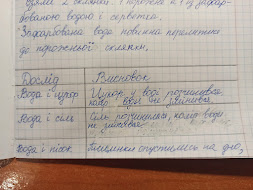 взяли 2 склянки. 1 порожня а 1 із зафар-
бованою водою і серветка.
"Зафарбована вода повинна переміститися
до порожньої склянки.
Дослід Висновок
Вода і цукор Цукор у воді розчинився,
колір води не змінився.
Вода і сіль Сіль розчинилась, колір води
не змінився.
Вода і пісок Піщинки опустились на дно,